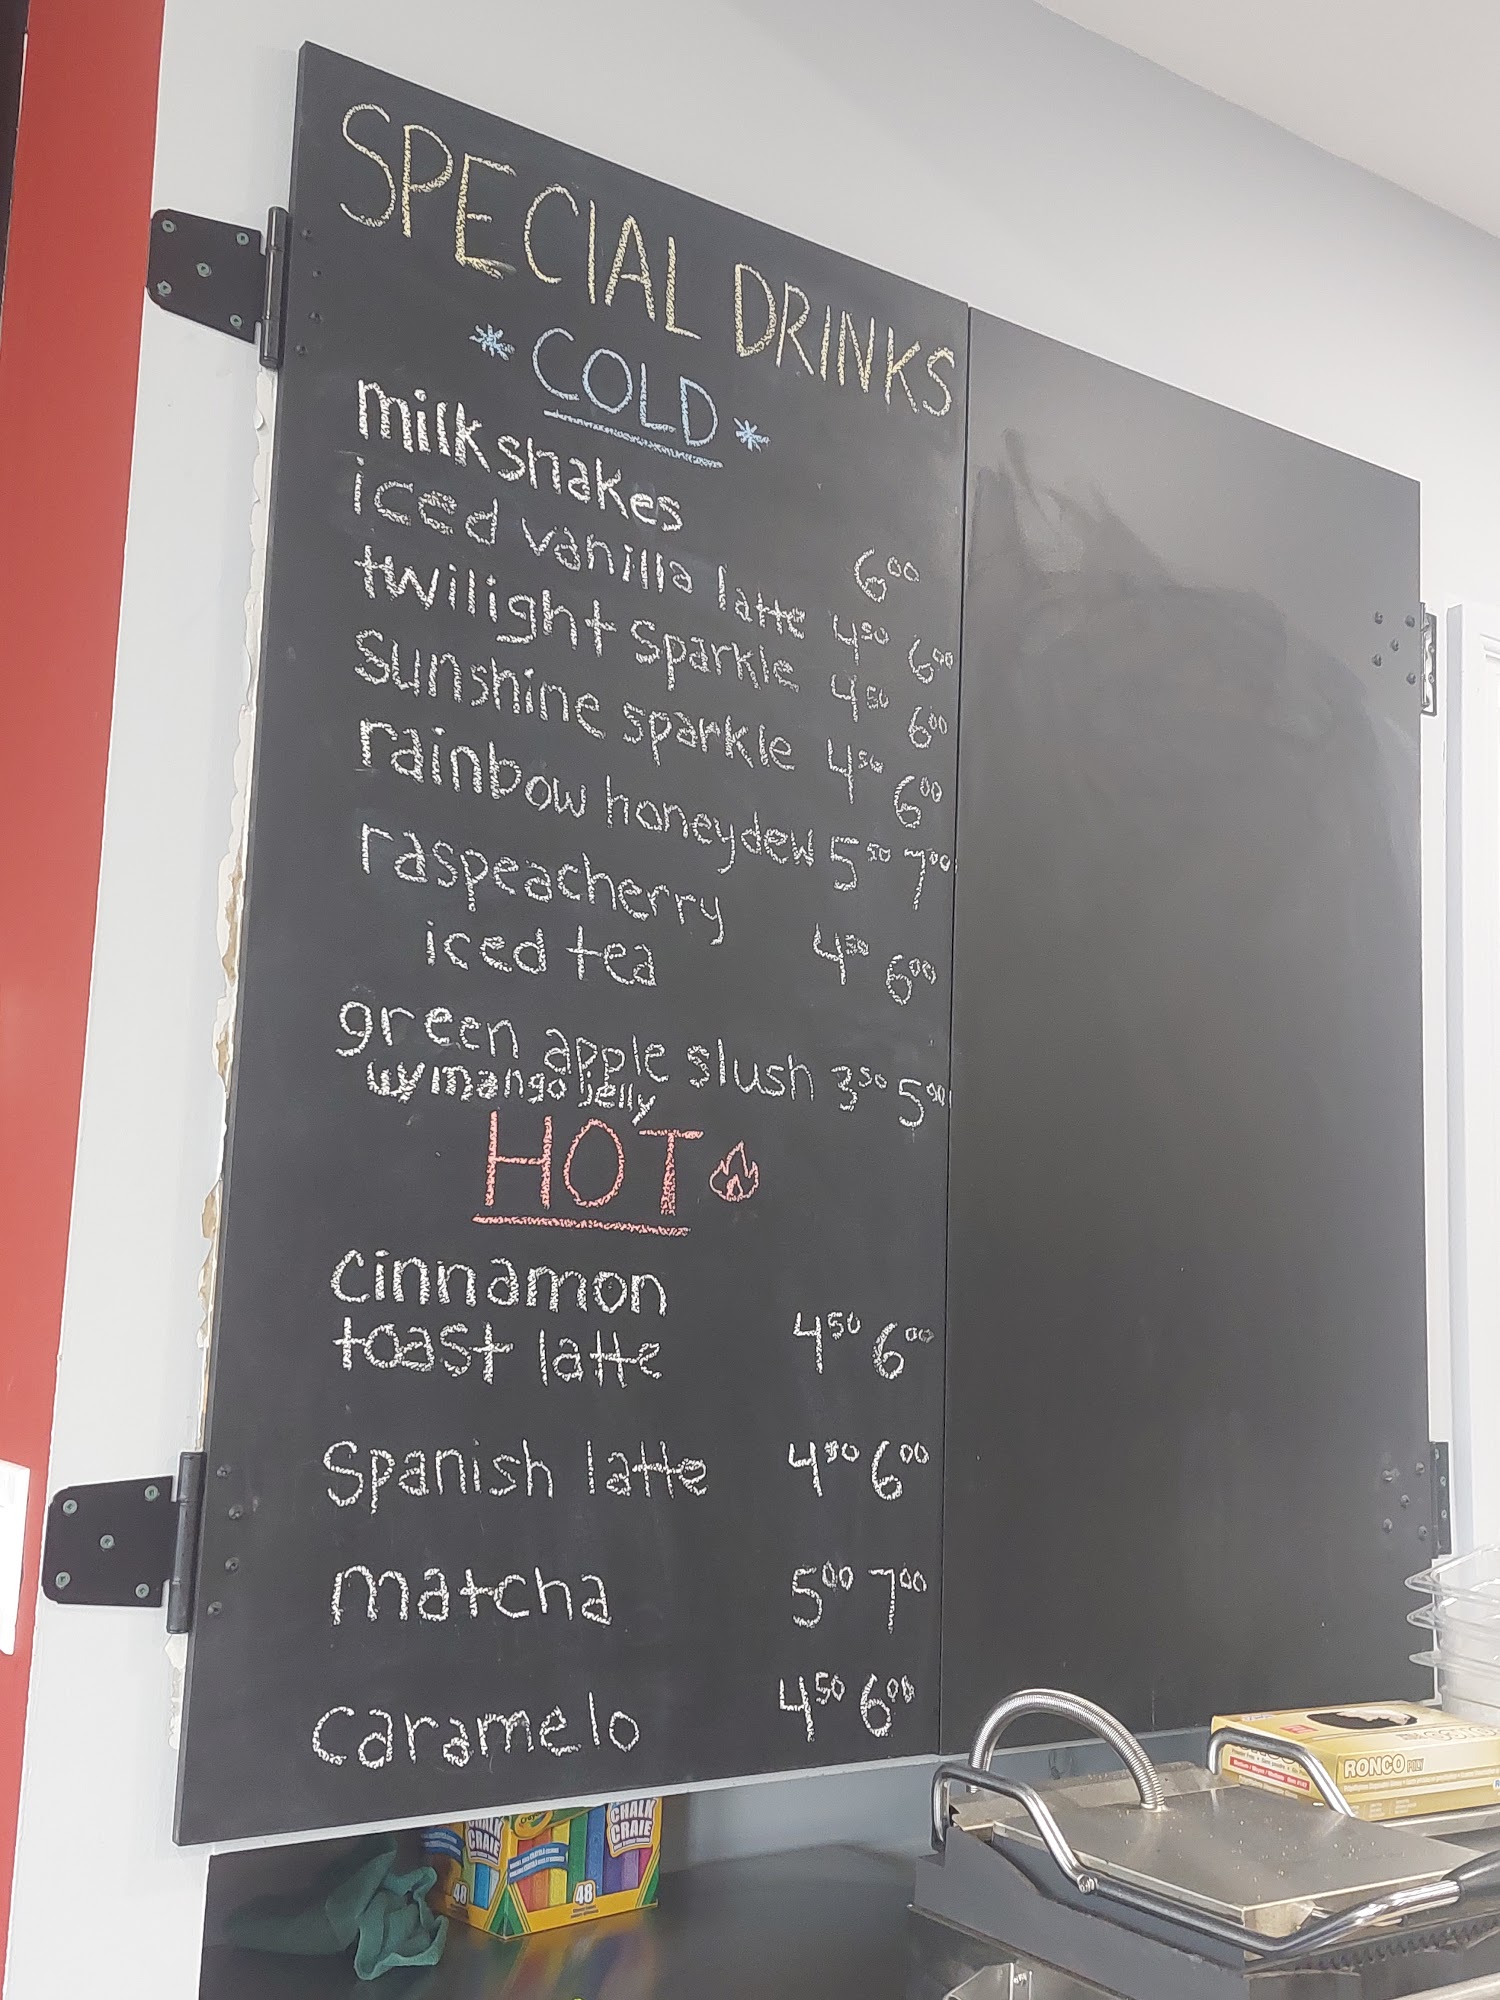 SPECIAL DRINKS
* COLD *
milkshakes 6⁰⁰
iced vanilla latte 4⁵⁰ 6⁰⁰
twilight sparkle 4⁵⁰ 6⁰⁰
sunshine sparkle 4⁵⁰ 6⁰⁰
rainbow honeydew 5⁵⁰ 7⁰⁰
raspeacherry
iced tea 4⁵⁰ 6⁰⁰
green apple slush 3⁵⁰ 5⁰⁰
w/mango jelly
HOT
cinnamon
toast latte 4⁵⁰ 6⁰⁰
Spanish latte 4⁵⁰ 6⁰⁰
matcha 5⁰⁰ 7⁰⁰
caramelo 4⁵⁰ 6⁰⁰
RONCO POLY
CHALK
CRAIE
48
CHALK
CRAIE
48